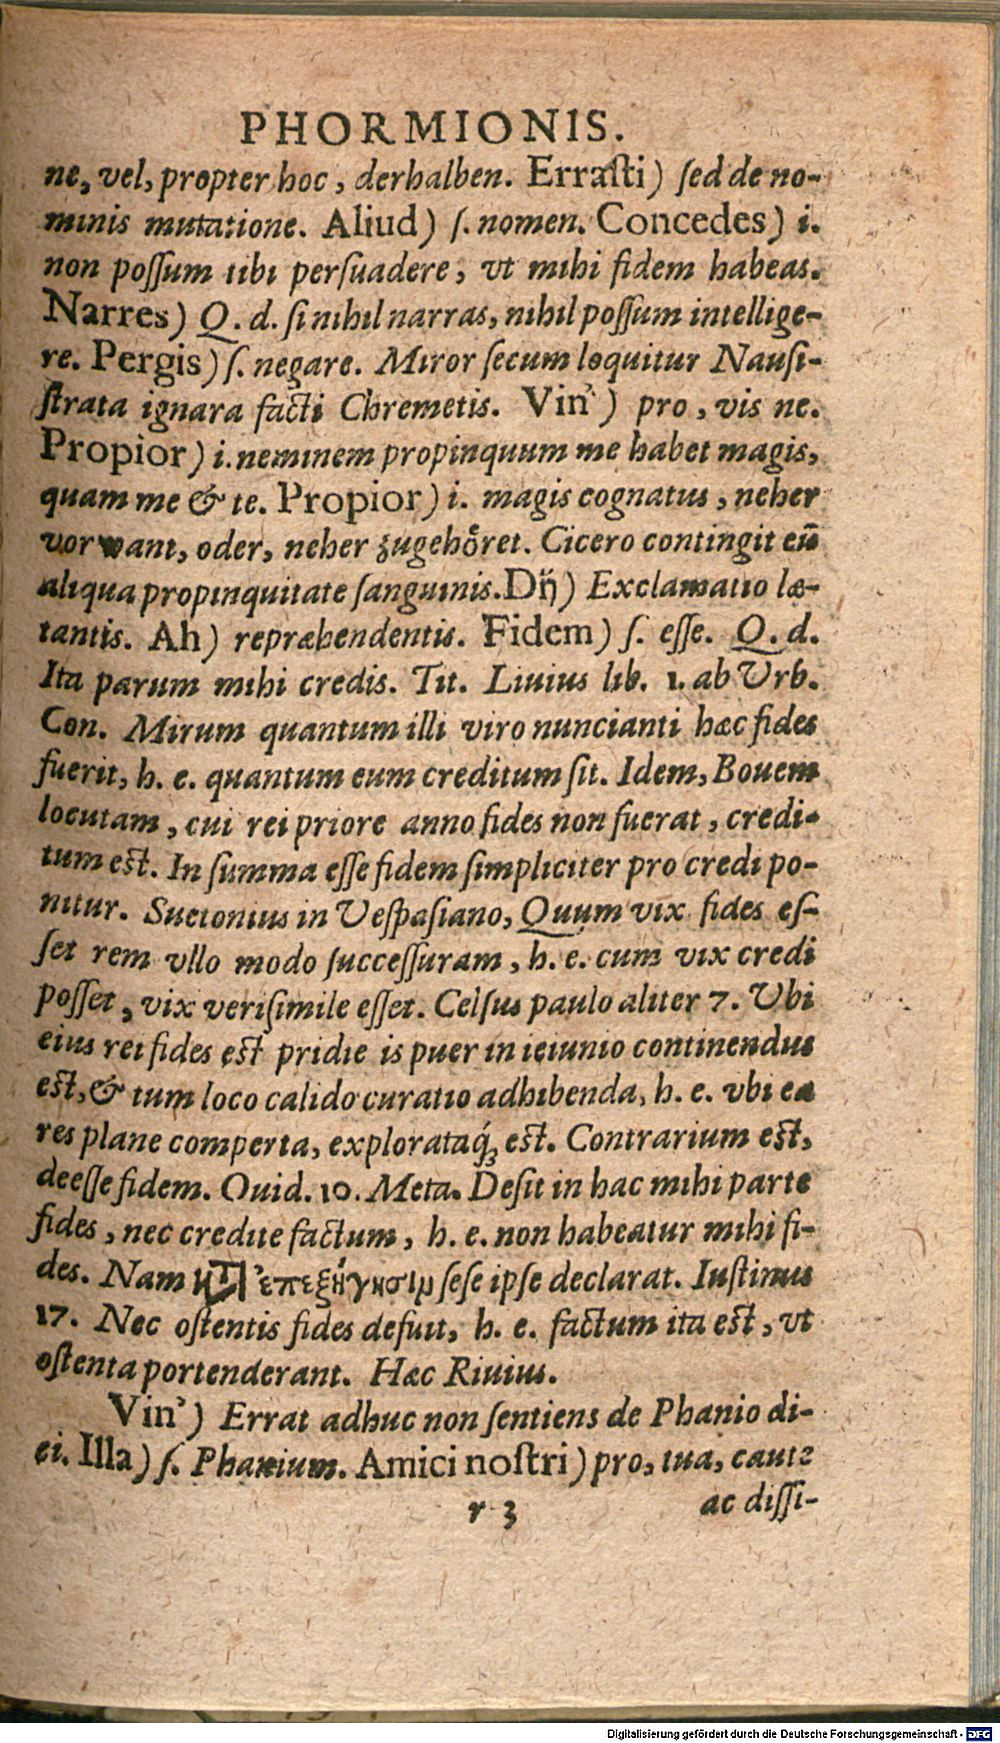 PHORMIONIS.
ne, vel, propter hoc, derhalben. Errasti) ſed de no-
minis mutatione. Aliud) ſ. nomen. Concedes) i.
non poſſum tibi perſuadere, vt mihi fidem habeas.
Narres) Q. d. ſi nihil narras, nihil poſſum intellige-
re. Pergis) ſ. negare. Miror ſecum loquitur Nauſi-
ſtrata ignara facti Chremetis. Vin') pro, vis ne.
Propior) i. neminem propinquum me habet magis,
quam me & te. Propior) i. magis cognatus, neher
vorwant, oder, neher zugehöret. Cicero contingit eū
aliqua propinquitate ſanguinis. Dij) Exclamatio læ-
tantis. Ah) repræhendentis. Fidem) ſ. eſſe. Q. d.
Ita parum mihi credis. Tit. Liuius lib. 1. ab Vrb.
Con. Mirum quantum illi viro nuncianti hæc fides
fuerit, h. e. quantum eum creditum ſit. Idem, Bouem
locutam, cui rei priore anno fides non fuerat, credi-
tum eſt. In ſumma eſſe fidem ſimpliciter pro credi po-
nitur. Suetonius in Veſpaſiano, Quum vix fides eſ-
ſet rem vllo modo ſucceſſuram, h. e. cum vix credi
poſſet, vix veriſimile eſſet. Celſus paulo aliter 7. Vbi
eius rei fides eſt pridie is puer in ieiunio continendus
eſt, & tum loco calido curatio adhibenda, h. e. vbi ea
res plane comperta, explorataq́ȝ eſt. Contrarium eſt,
deeſſe fidem. Ouid. 10. Meta. Deſit in hac mihi parte
fides, nec credite factum, h. e. non habeatur mihi fi-
des. Nam ἐπεξήγησιμ ſeſe ipſe declarat. Iuſtinus
17. Nec oſtentis fides defuit, h. e. factum ita eſt, vt
oſtenta portenderant. Hæc Riuius.
Vin') Errat adhuc non ſentiens de Phanio di-
ci. Illa) ſ. Phanium. Amici noſtri) pro, tua, caute
r 3 ac diſſi-
Digitalisierung gefördert durch die Deutsche Forschungsgemeinschaft - DFG